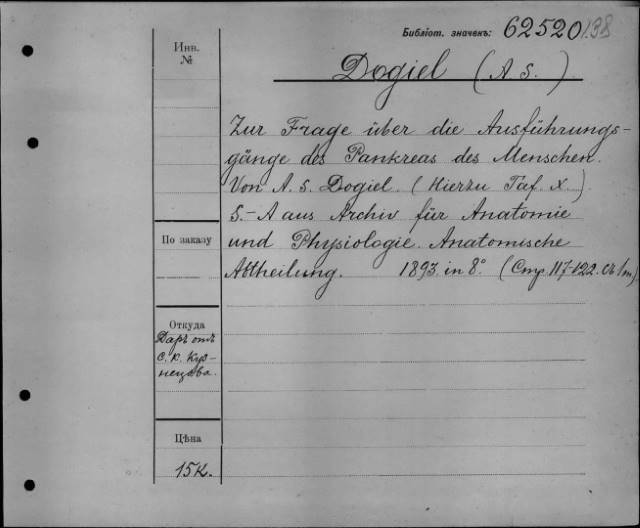 Библіот. значекъ: 62520/138
Инв.
№
Dogiel (A S.)
Zur Frage über die Ausführungs-
gänge des Pankreas des Menschen.
Von A. S. Dogiel. (Hierzu Taf. X.)
S.-A aus Archiv für Anatomie
По заказу
und Physiologie. Anatomische
Abtheilung. 1893. in 8°. (Стр. 117-122.
Откуда
Даръ отъ
С. К. Куз-
нецова.
Цѣна
15 к.